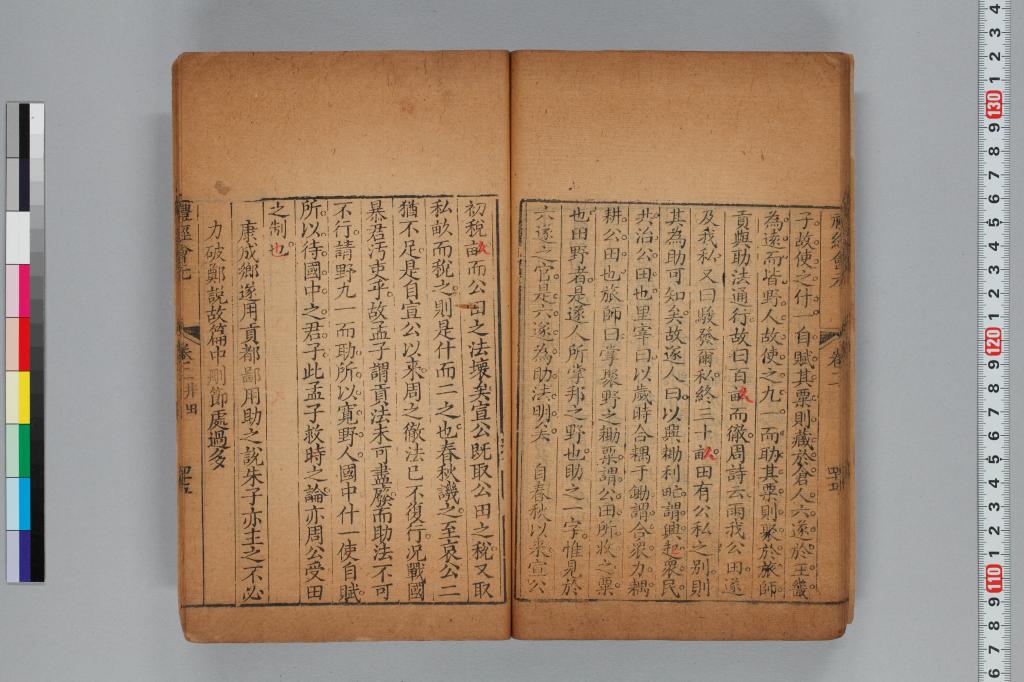 子故使之什一自賦其粟則藏於倉人六遂於王畿
為遠而皆野人故使之九一而助其粟則聚於旅師
貢與助法通行故曰百畝而徹周詩云雨我公田遂
及我私又曰駿發爾私終三十畝田有公私之別則
其為助可知矣故遂人曰以興耡利甿謂興起衆民
共治公田也里宰曰以歲時合耦于鋤謂合衆力耦
耕公田也旅師曰掌聚野之耡粟謂公田所收之粟
也田野者是遂人所掌邦之野也助之一字惟見於
六遂之官是六遂為助法明矣 自春秋以來宣公
初稅畝而公田之法壞矣宣公既取公田之稅又取
私畝而稅之則是什而二之也春秋譏之至哀公二
猶不足是自宣公以來周之徹法已不復行况戰國
暴君汚吏乎故孟子謂貢法未可盡廢而助法不可
不行請野九一而助所以寬野人國中什一使自賦
所以待國中之君子此孟子救時之論亦周公受田
之制也
康成鄉遂用貢都鄙用助之說朱子亦主之不必
力破鄭說故篇中刪節處過多
禮經會元
卷二井田